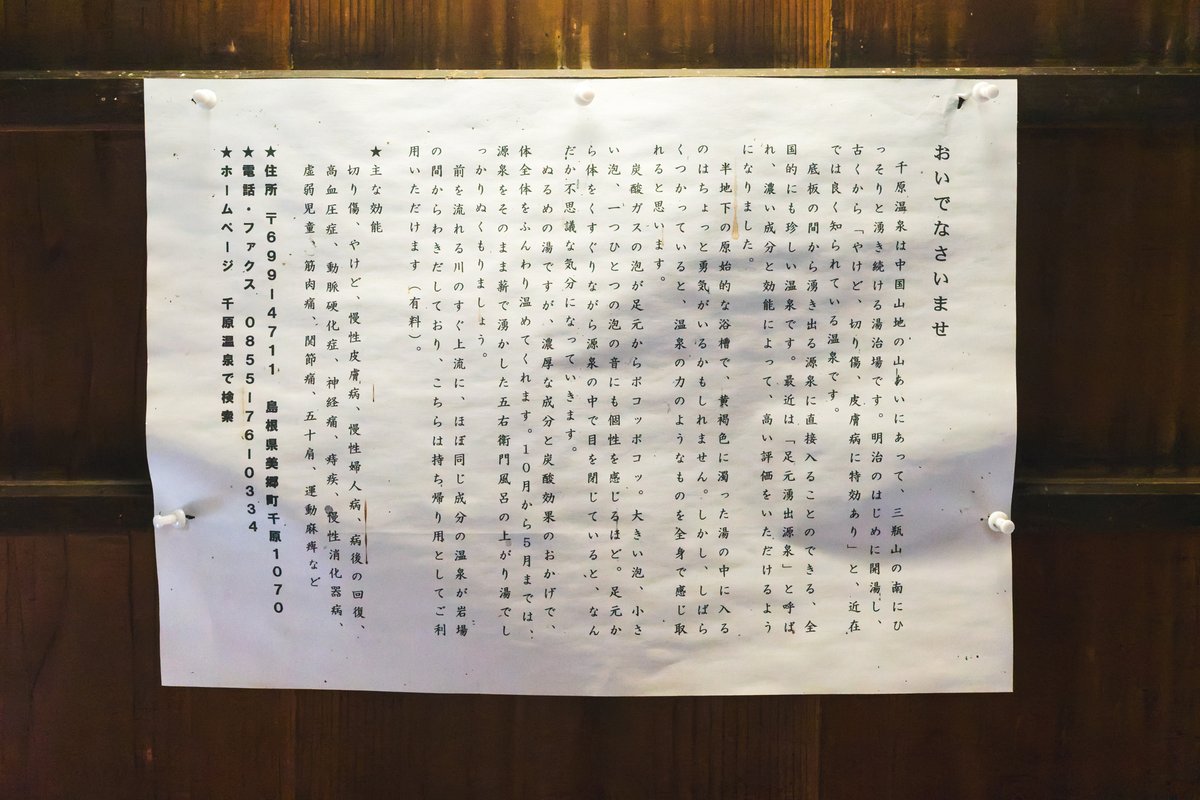 おいでなさいませ
千原温泉は中国山地の山あいにあって、三瓶山の南にひ
っそりと湧き続ける湯治場です。明治のはじめに開湯し、
古くから「やけど、切り傷、皮膚病に特効あり」と、近在
では良く知られている温泉です。
底板の間から湧き出る源泉に直接入ることのできる、全
国的にも珍しい温泉です。最近は「足元湧出源泉」と呼ば
れ、濃い成分と効能によって、高い評価をいただけるよう
になりました。
半地下の原始的な浴槽で、黄褐色に濁った湯の中に入る
のはちょっと勇気がいるかもしれません。しかし、しばら
くつかっていると、温泉の力のようなものを全身で感じ取
れると思います。
炭酸ガスの泡が足元からポコッポコッ。大きい泡、小さ
い泡、一つひとつの泡の音にも個性を感じるほど。足元か
ら体をくすぐりながら源泉の中で目を閉じていると、なん
だか不思議な気分になっていきます。
ぬるめの湯ですが、濃厚な成分と炭酸効果のおかげで、
体全体をふんわり温めてくれます。10月から5月までは、
源泉をそのまま薪で湧かした五右衛門風呂の上がり湯でし
っかりぬくもりましょう。
前を流れる川のすぐ上流に、ほぼ同じ成分の温泉が岩場
の間からわきだしており、こちらは持ち帰り用としてご利
用いただけます（有料）。
★主な効能
切り傷、やけど、慢性皮膚病、慢性婦人病、病後の回復、
高血圧症、動脈硬化症、神経痛、痔疾、慢性消化器病、
虚弱児童、筋肉痛、関節痛、五十肩、運動麻痺など
★住所　〒699-4711　島根県美郷町千原1070
★電話・ファクス　0855-76-0334
★ホームページ　千原温泉で検索